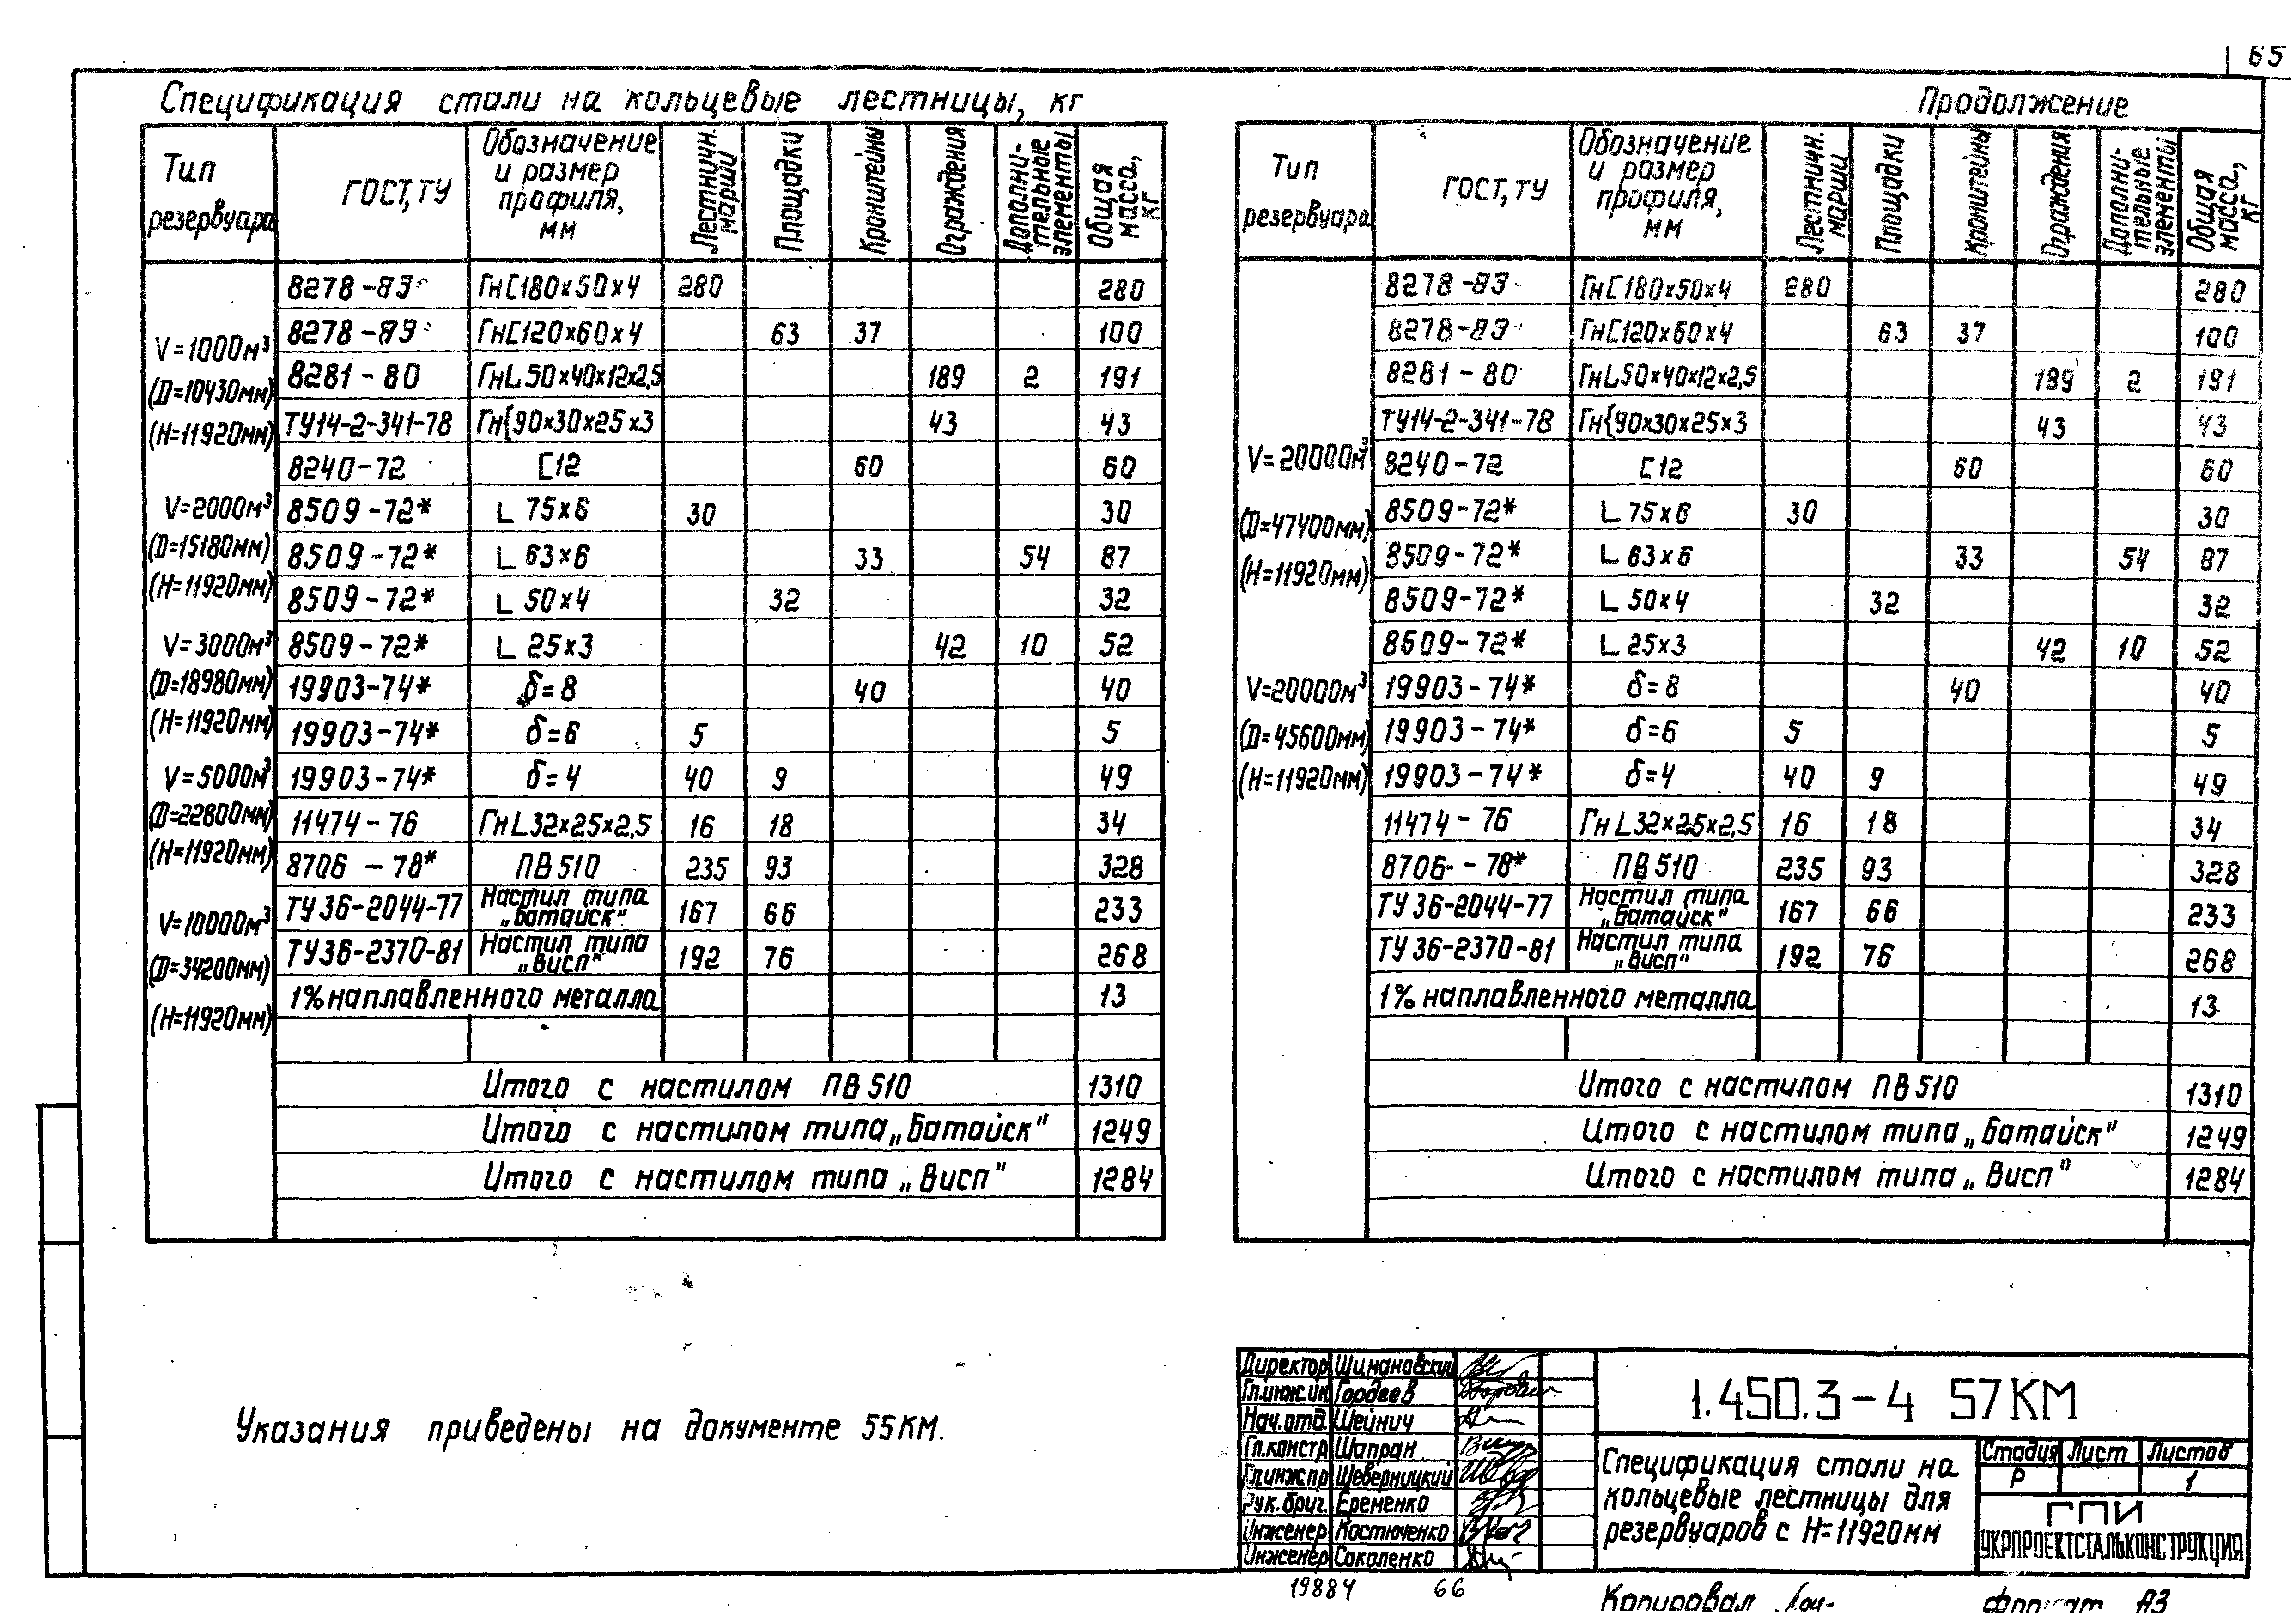 65
Спецификация стали на кольцевые лестницы, кг
Тип резервуара | ГОСТ, ТУ | Обозначение и размер профиля, мм | Лестничн. марши | Площадки | Кронштейны | Ограждения | Дополни-тельные элементы | Общая масса, кг
V=1000м³
(D=10430мм)
(H=11920мм)
V=2000м³
(D=15180мм)
(H=11920мм)
V=3000м³
(D=18980мм)
(H=11920мм)
V=5000м³
(D=22800мм)
(H=11920мм)
V=10000м³
(D=34200мм)
(H=11920мм)
8278-83 Гн[180×50×4 280 280
8278-83 Гн[120×60×4 63 37 100
8281-80 ГнL50×40×12×2,5 189 2 191
ТУ14-2-341-78 Гн{90×30×25×3 43 43
8240-72 [12 60 60
8509-72* L 75×6 30 30
8509-72* L 63×6 33 54 87
8509-72* L 50×4 32 32
8509-72* L 25×3 42 10 52
19903-74* δ=8 40 40
19903-74* δ=6 5 5
19903-74* δ=4 40 9 49
11474-76 ГнL32×25×2,5 16 18 34
8706-78* ПВ510 235 93 328
ТУ36-2044-77 Настил типа „Батайск" 167 66 233
ТУ36-2370-81 Настил типа „Висп" 192 76 268
1% наплавленного металла 13
Итого с настилом ПВ510 1310
Итого с настилом типа „Батайск" 1249
Итого с настилом типа „Висп" 1284
Продолжение
Тип резервуара | ГОСТ, ТУ | Обозначение и размер профиля, мм | Лестничн. марши | Площадки | Кронштейны | Ограждения | Дополни-тельные элементы | Общая масса, кг
V=20000м³
(D=47400мм)
(H=11920мм)
V=20000м³
(D=45600мм)
(H=11920мм)
8278-83 Гн[180×50×4 280 280
8278-83 Гн[120×60×4 63 37 100
8281-80 ГнL50×40×12×2,5 189 2 191
ТУ14-2-341-78 Гн{90×30×25×3 43 43
8240-72 [12 60 60
8509-72* L 75×6 30 30
8509-72* L 63×6 33 54 87
8509-72* L 50×4 32 32
8509-72* L 25×3 42 10 52
19903-74* δ=8 40 40
19903-74* δ=6 5 5
19903-74* δ=4 40 9 49
11474-76 ГнL32×25×2,5 16 18 34
8706-78* ПВ510 235 93 328
ТУ36-2044-77 Настил типа „Батайск" 167 66 233
ТУ36-2370-81 Настил типа „Висп" 192 76 268
1% наплавленного металла 13
Итого с настилом ПВ510 1310
Итого с настилом типа „Батайск" 1249
Итого с настилом типа „Висп" 1284
Указания приведены на документе 55КМ.
Директор Шимановский
Гл.инж.ин Гордеев
Нач.отд. Шейнич
Гл.констр Шапран
Гл.инж.пр Шеверницкий
Рук.бриг. Еременко
Инженер Костюченко
Инженер Соколенко
1.450.3-4 57КМ
Спецификация стали на
кольцевые лестницы для
резервуаров с H=11920мм
Стадия Лист Листов
Р 1
ГПИ
УКРПРОЕКТСТАЛЬКОНСТРУКЦИЯ
19884 66
Копировал Формат А3